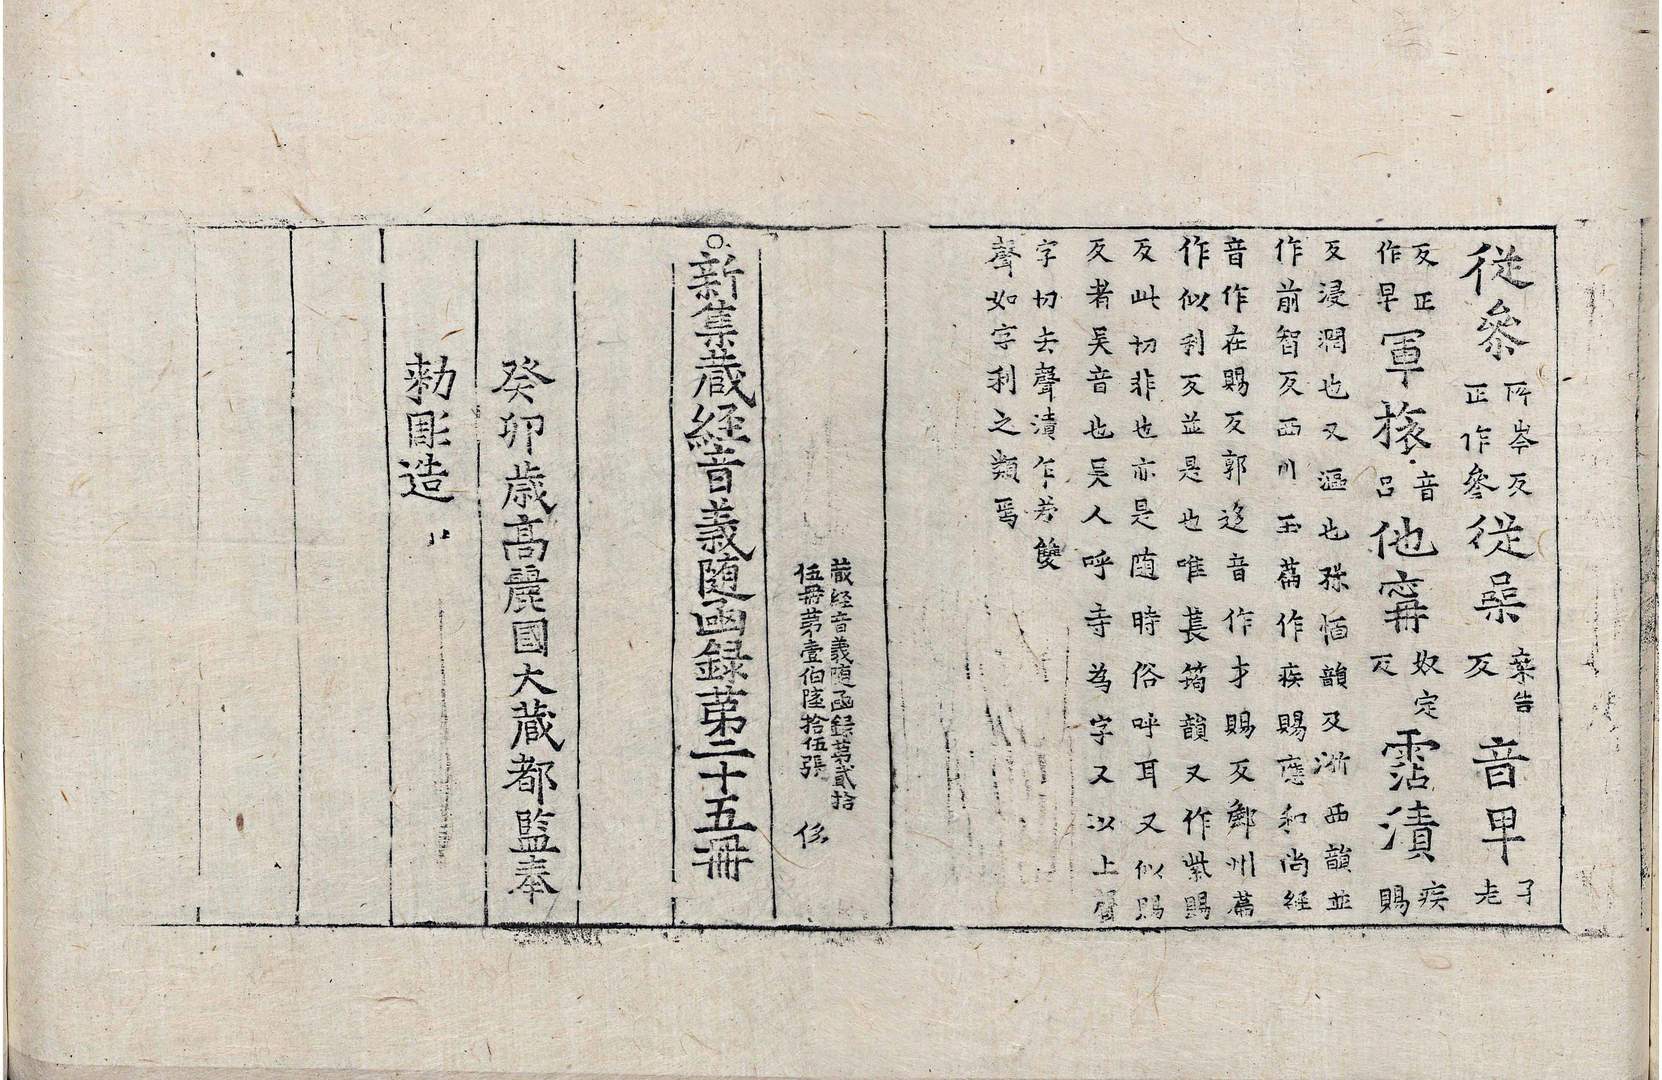 從叅所岑反正作叅從喿桒告反音早子老
反正作早軍䘳音呂他寗奴定反霑漬疾賜
反浸潤也又漚也孫愐韻及浙西韻並
作前智反西川玉篇作疾賜反應和尚經
音作在賜反郭迻音作才賜反鄜州篇
作似利反並是也唯萇筠韻又作紫賜
反此切非也亦是随時俗呼耳又似賜
反者吴音也吴人呼寺為字又以上聲
字切去聲漬乍夯雙
聲如字利之類焉
藏經音義随函録第貳拾
伍冊第壹伯陸拾伍張
新集藏經音義随函録第二十五冊
癸卯歳高麗國大藏都監奉
勑彫造